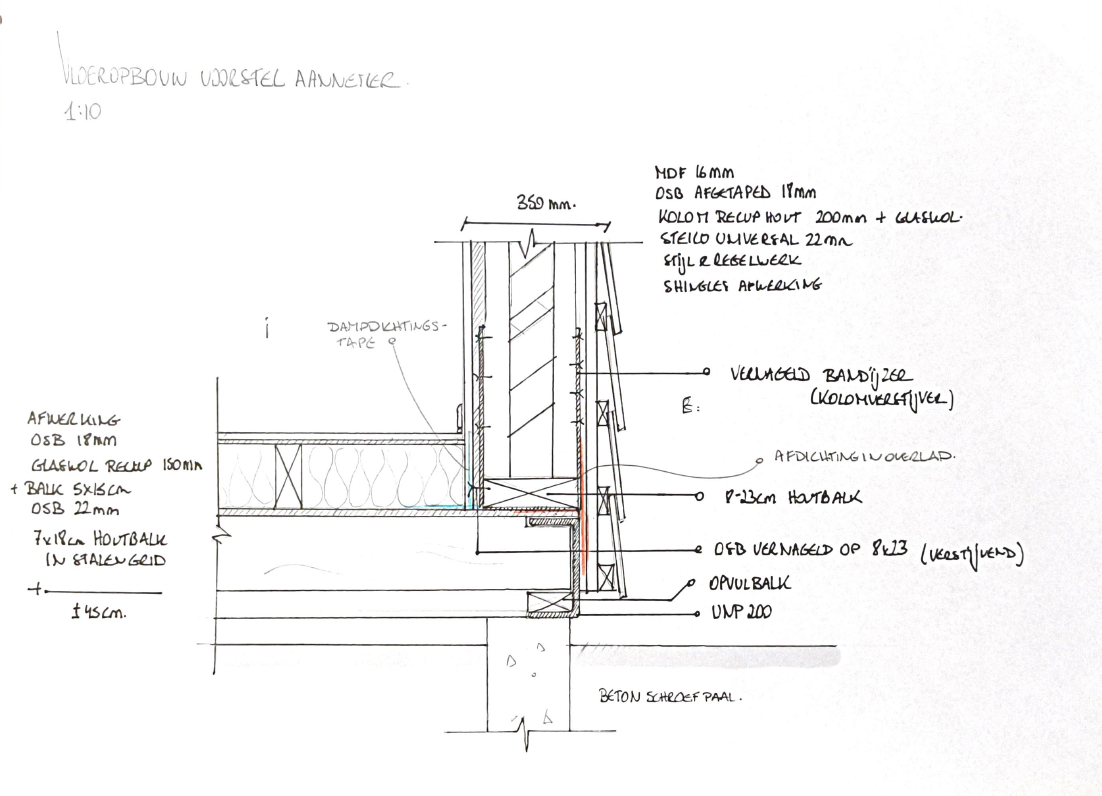 VLOEROPBOUW VOORSTEL AANNEMER.
1:10
350 mm.
MDF 16mm
OSB AFGETAPED 18mm
KOLOM RECUP HOUT 200mm + GLASWOL.
STEICO UNIVERSAL 22mm
STIJL & REGELWERK
SHINGLES AFWERKING
i
DAMPDICHTINGS-
TAPE
VERNAGELD BANDIJZER
(KOLOMVERSTIJVER)
E:
AFDICHTING IN OVERLAP.
8-23cm HOUTBALK
OSB VERNAGELD OP 8x23 (VERSTIJVEND)
OPVULBALK
UNP 200
AFWERKING
OSB 18mm
GLASWOL RECUP 150mm
+ BALK 5x15cm
OSB 22mm
7x18cm HOUTBALK
IN STALEN GRID
± 45cm.
BETON SCHROEFPAAL.